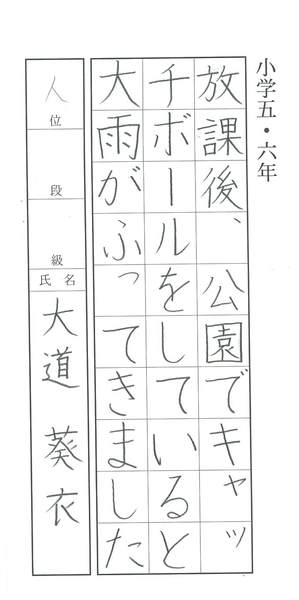 小学五・六年
放課後、公園でキャッ
チボールをしていると
大雨がふってきました
人位
段
級
氏名
大道 葵衣